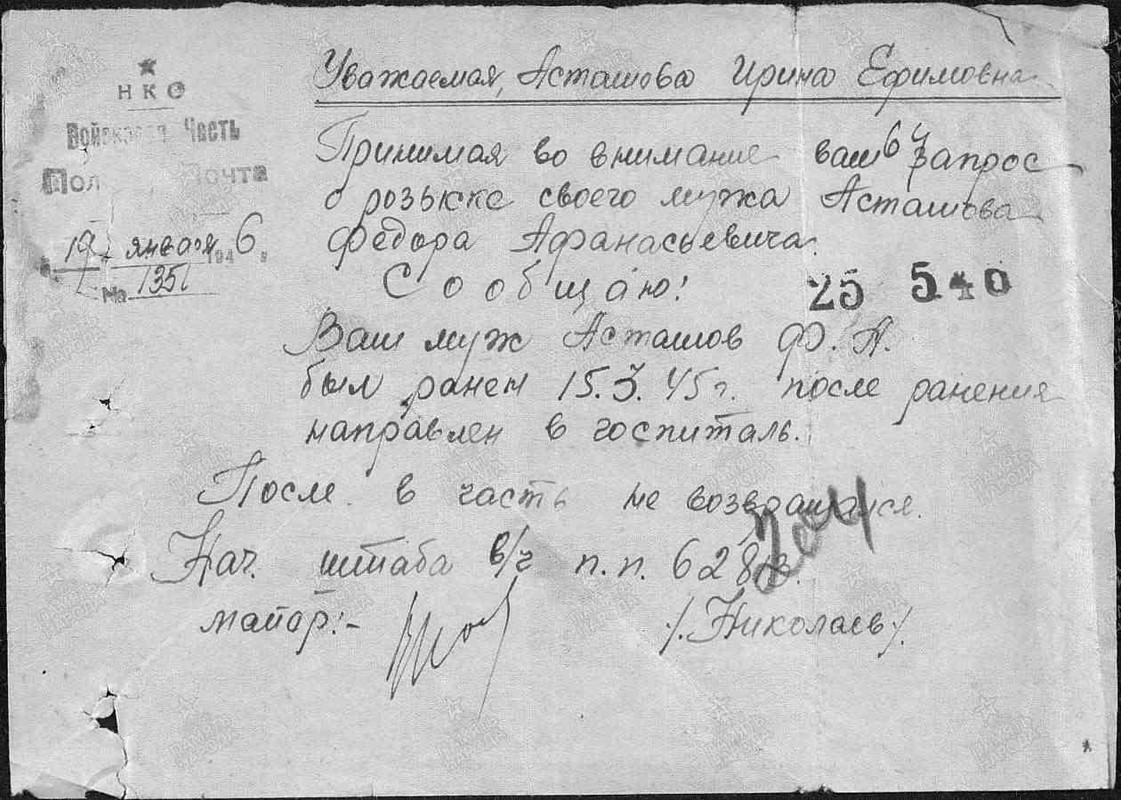 НКО
Войсковая Часть
Пол Почта
19 января 1946,
№ 1351
Уважаемая, Асташова Ирина Ефимовна
Принимая во внимание ваш запрос
64
о розыске своего мужа Асташова
Федора Афанасьевича.
Сообщаю!
25 540
Ваш муж Асташов Ф. А.
был ранен 15.3.45г. после ранения
направлен в госпиталь.
После в часть не возвращался.
Нач. штаба в/ч п.п. 628
майор:-
/.Николаев/.